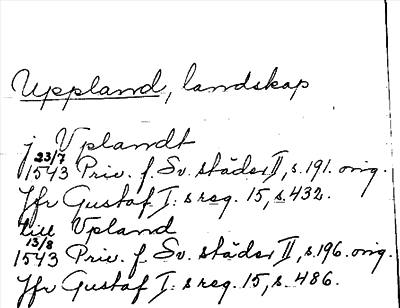 Uppland, landskap
j Vplandt
23/7
1543 Priv. f. Sv. städer II, s. 191. orig.
Jfr Gustaf I:s reg. 15, s. 432.
till Vpland
13/8
1543 Priv. f. Sv. städer II, s. 196. orig.
Jfr Gustaf I:s reg. 15, s. 486.